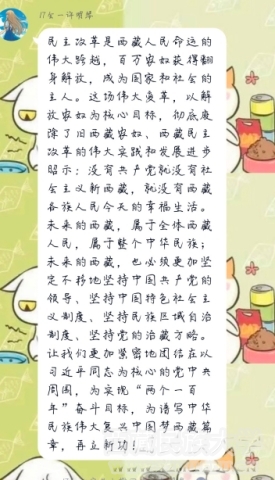 民主改革是西藏人民命运的
伟大跨越，百万农奴获得翻
身解放，成为国家和社会的
主人。这场伟大变革，以解
放农奴为核心目标，彻底废
除了旧西藏农奴、西藏民主
改革的伟大实践和发展进步
昭示：没有共产党就没有社
会主义新西藏，就没有西藏
各族人民今天的幸福生活。
未来的西藏，属于全体西藏
人民，属于整个中华民族；
未来的西藏，也必须更加坚
定不移地坚持中国共产党的
领导、坚持中国特色社会主
义制度、坚持民族区域自治
制度、坚持党的治藏方略。
让我们更加紧密地团结在以
习近平同志为核心的党中央
周围，为实现“两个一百
年”奋斗目标，为谱写中华
民族伟大复兴中国梦西藏篇
章，再立新功！